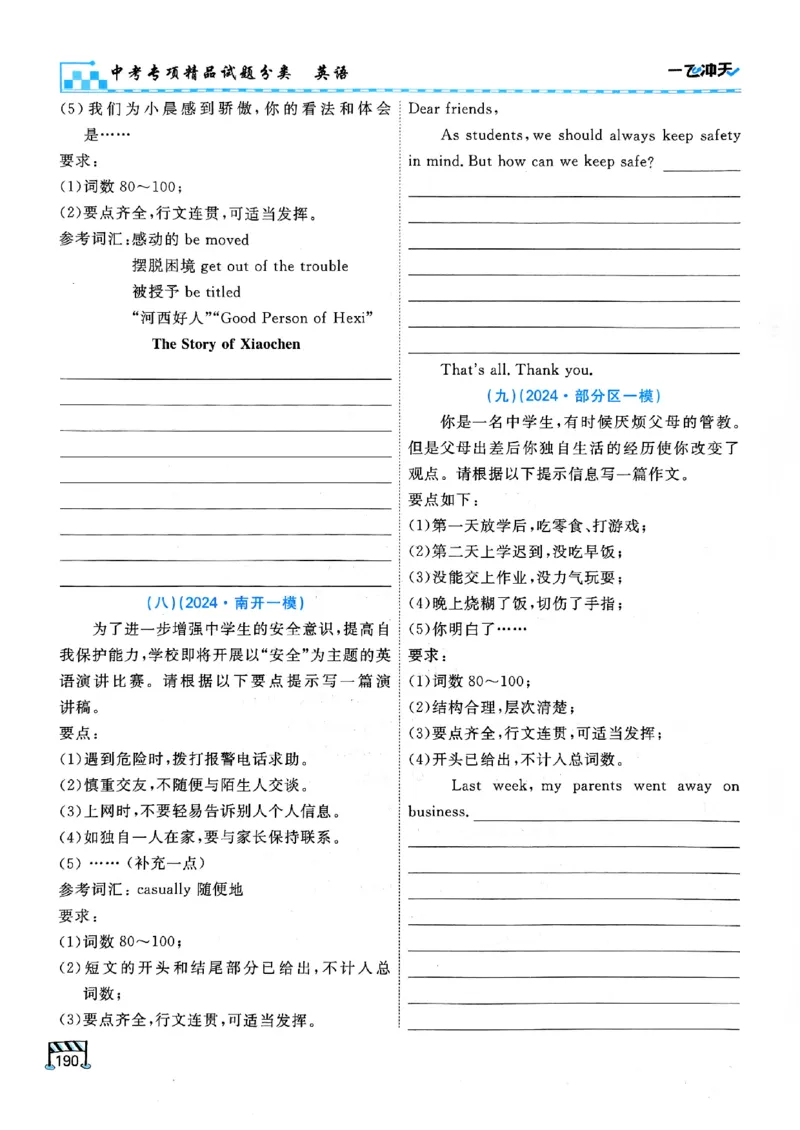 中考专项精品试题分类 英语
一飞冲天
(5)我们为小晨感到骄傲,你的看法和体会
是……
要求:
(1)词数 80～100;
(2)要点齐全,行文连贯,可适当发挥。
参考词汇:感动的 be moved
摆脱困境 get out of the trouble
被授予 be titled
“河西好人”“Good Person of Hexi”
The Story of Xiaochen
(八)(2024·南开一模)
为了进一步增强中学生的安全意识,提高自
我保护能力,学校即将开展以“安全”为主题的英
语演讲比赛。请根据以下要点提示写一篇演
讲稿。
要点:
(1)遇到危险时,拨打报警电话求助。
(2)慎重交友,不随便与陌生人交谈。
(3)上网时,不要轻易告诉别人个人信息。
(4)如独自一人在家,要与家长保持联系。
(5) ……(补充一点)
参考词汇: casually 随便地
要求:
(1)词数 80～100;
(2)短文的开头和结尾部分已给出,不计入总
词数;
(3)要点齐全,行文连贯,可适当发挥。
Dear friends,
As students, we should always keep safety
in mind. But how can we keep safe?
That's all. Thank you.
(九)(2024·部分区一模)
你是一名中学生,有时候厌烦父母的管教。
但是父母出差后你独自生活的经历使你改变了
观点。请根据以下提示信息写一篇作文。
要点如下:
(1)第一天放学后,吃零食、打游戏;
(2)第二天上学迟到,没吃早饭;
(3)没能交上作业,没力气玩耍;
(4)晚上烧糊了饭,切伤了手指;
(5)你明白了……
要求:
(1)词数 80～100;
(2)结构合理,层次清楚;
(3)要点齐全,行文连贯,可适当发挥;
(4)开头已给出,不计入总词数。
Last week, my parents went away on
business.
190